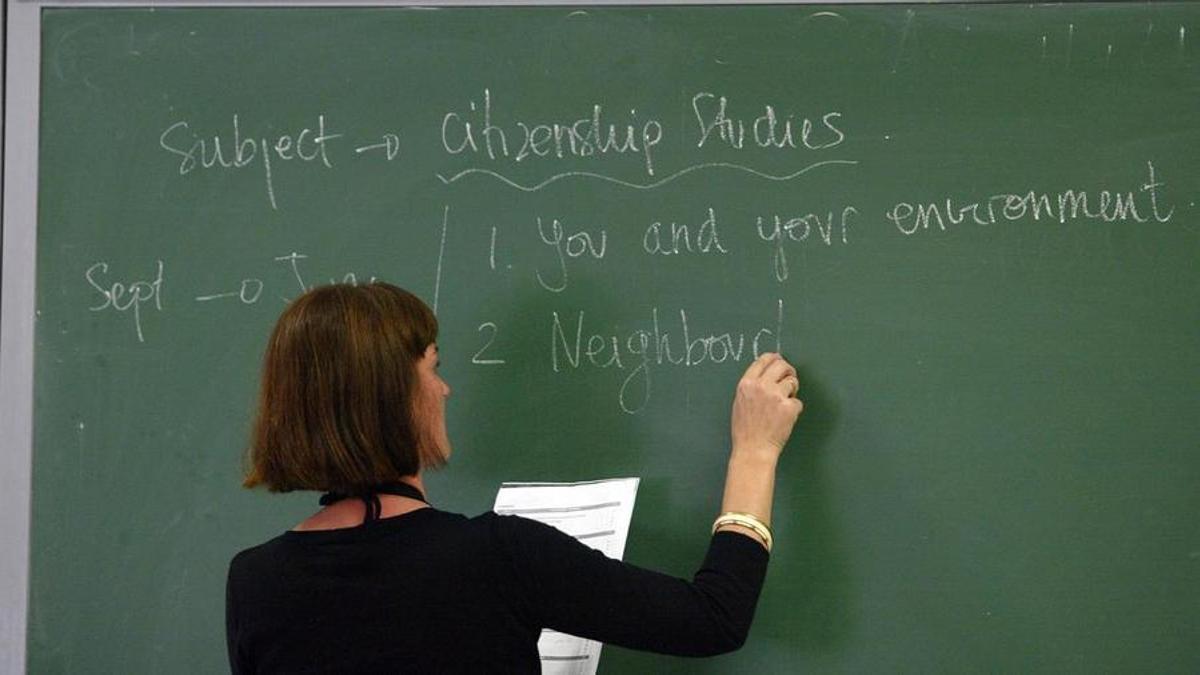 Subject → Citizenship Studies
Sept →
1. You and your environment
2 Neighbour